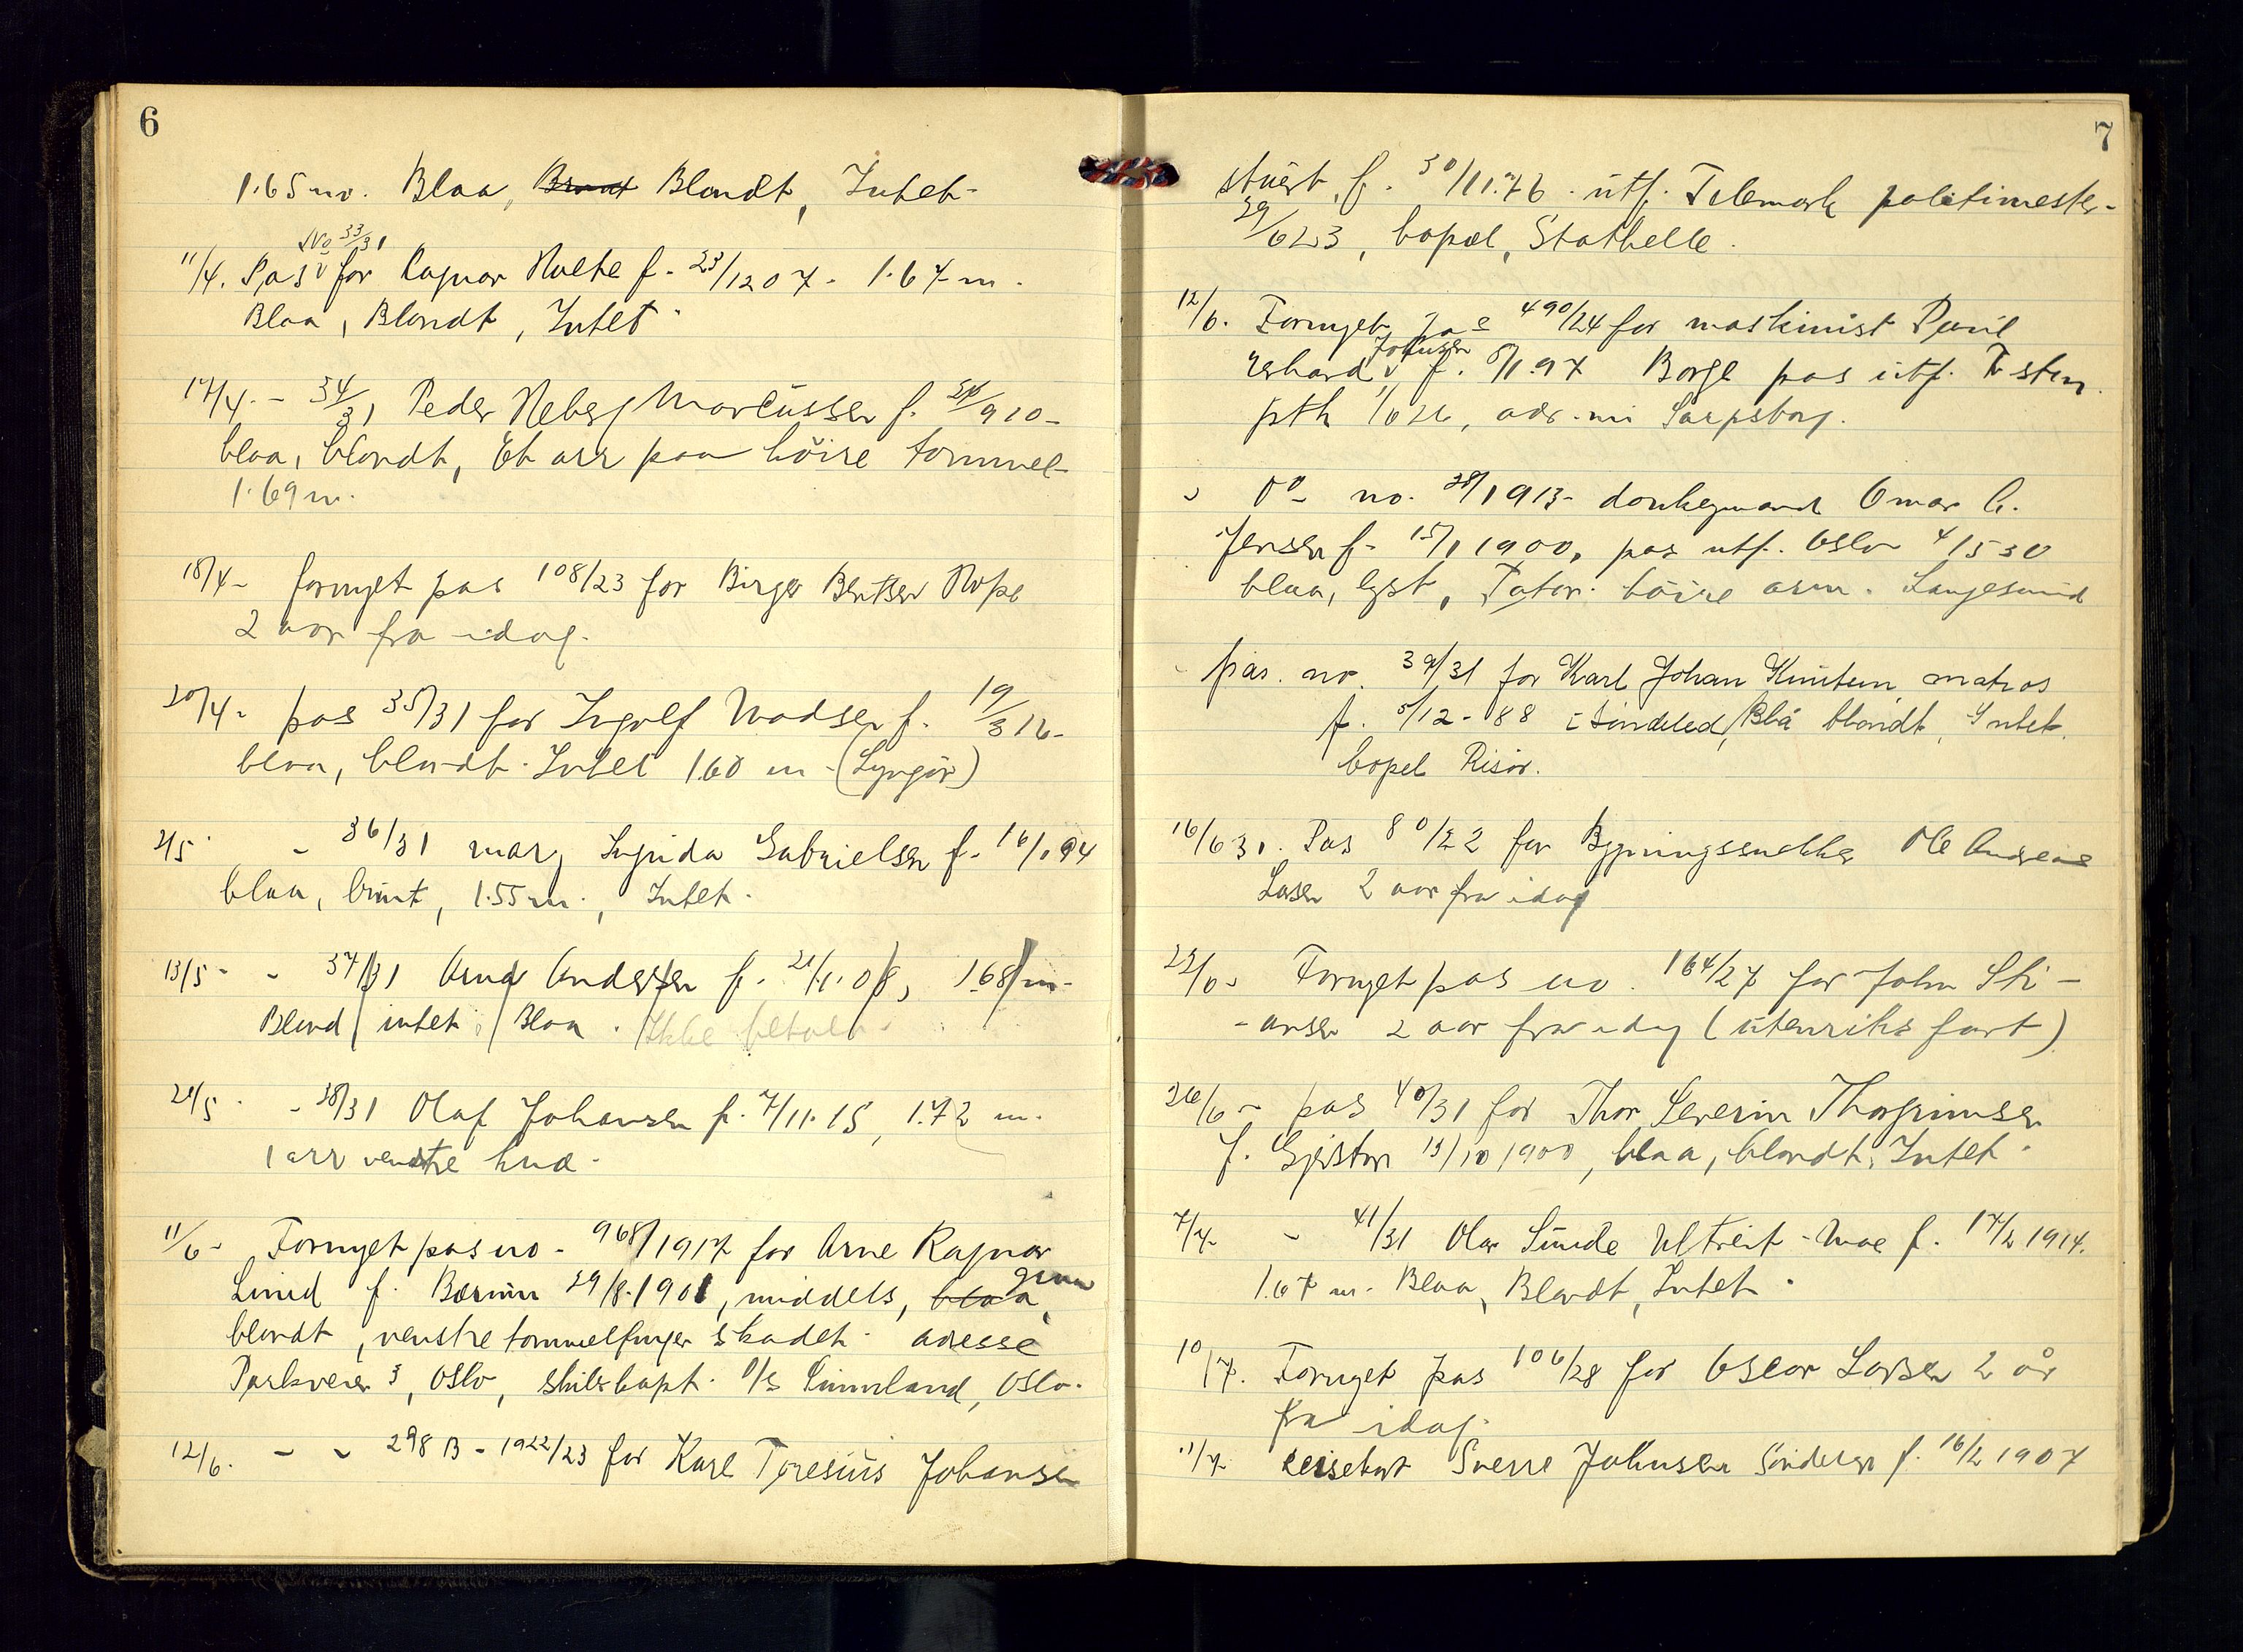 6
1.65 m. Blaa, Brunt Blondt, Intet-
No 33/31
11/4. Pas for Ragnar f. 23/12 07. 1.67 m.
Blaa, Blondt, Intet
17/4. - 34/31 Peder Heberg Marcussen f. 9 10-
blaa, blondt, Et arr paa höire tommel
1.69 m.
18/4- fornyet pas 108/23 for Birger Bentsen Hope
2 aar fra idag.
20/4- pas 35/31 for Ingolf Madsen f. 19/3 12-
blaa, blondt. Intet 1.60 m - (Lyngör)
2/5 - 36/31 Ingrida Gabrielsen f. 16/1 94
blaa, brunt, 1.55 m., Intet.
13/5- - 37/31 Arne Andersen f. 21/1. 08, 1.68 m-
Blond intet, Blaa. Ikke betalt
21/5 - 38/31 Olaf Johansen f. 7/11. 15, 1.72 m.
1 arr venstre kne-
11/6- Fornyet pas no - 968/1917 for Arne Ragnar
Lund f. Bærum 29/8. 1901, middels, blaa, grøn
blondt, venstre tommelfinger skadet. adresse
Parkveien 3, Oslo, skibskapt. Oslo.
12/6. - - 298 B - 1922/23 for Karl Teresius Johansen
7
stuert, f. 30/11. 76. utf. Telemark politimester-
29/6 23, bopæl, Stathelle.
12/6. Fornyet pas 490/24 for maskinist Paul
Johnsen
Gerhard f. 5/1. 97 Borge pas utf.
pth 1/6 26, adr. nu Sarpsborg.
Do- no. 28/1913- donkeymand Omar C.
Jensen f- 15/1 1900, pas utf. Oslo 4/5 30
blaa, lyst, Tator. höire arm. Langesund
pas. no. 39/31 for Karl Johan Knutsen matros
f. 5/12 - 88 i Söndeled, Blå blondt, Intet.
bopel Risör.
16/6 31. Pas 80/22 for Bygningssnekker Ole Andreas
Larsen 2 aar fra idag
22/6- Fornyet pas no. 164/27 for John Sti-
-ansen 2 aar fra idag (utenriks fart)
26/6- pas 40/31 for Thor Severin Thorgrimsen
f. Gjerstad 13/10 1900, blaa, blondt, Intet.
7/7- - 41/31 Olav Sunde Ultveit-Moe f. 17/2 1914.
1.67 m. Blaa, Blondt, Intet.
10/7. Fornyet pas 106/28 for Oscar Larsen 2 år
fra idag.
11/7. Sverre Johnsen f. 16/2 1907